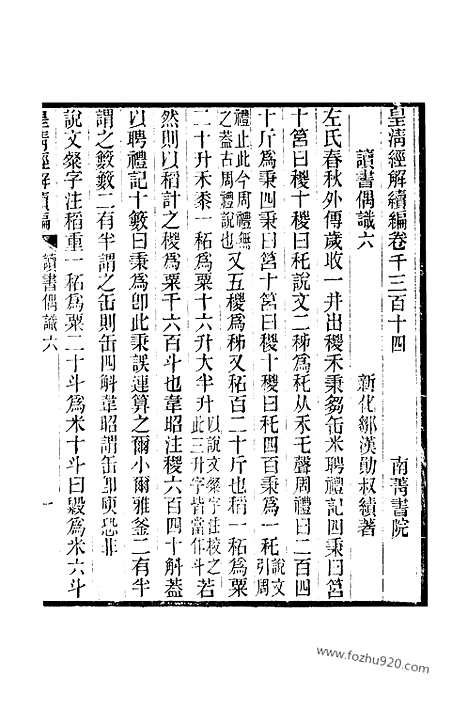 皇清經解續編卷千三百十四
南菁書院
讀書偶識六
新化鄒漢勛叔績著
左氏春秋外傳歲收一井出稷禾秉芻缶米聘禮記四秉曰筥
十筥曰稷十稷曰秅說文二秭為秅从禾乇聲周禮曰二百四
十斤為秉四秉曰筥十筥曰稷十稷曰秅四百秉為一秅說文引周
禮止此今周禮無之蓋古周禮說也又五稷為秭又䄷百二十斤也稻一䄷為粟
二十升禾黍一䄷為粟十六升大半升以說文粲字注校之此三升字皆當作斗若
然則以稻計之稷為粟千六百斗也韋昭注稷六百四十斛蓋
以聘禮記十籔曰秉為卽此秉誤連算之爾小爾雅釜二有半
謂之籔籔二有半謂之缶則缶四斛韋昭謂缶卽庾恐非
說文粲字注稻重一䄷為粟二十斗為米十斗曰毇為米六斗
皇清經解續編
讀書偶識六
一
www.fozhu920.com